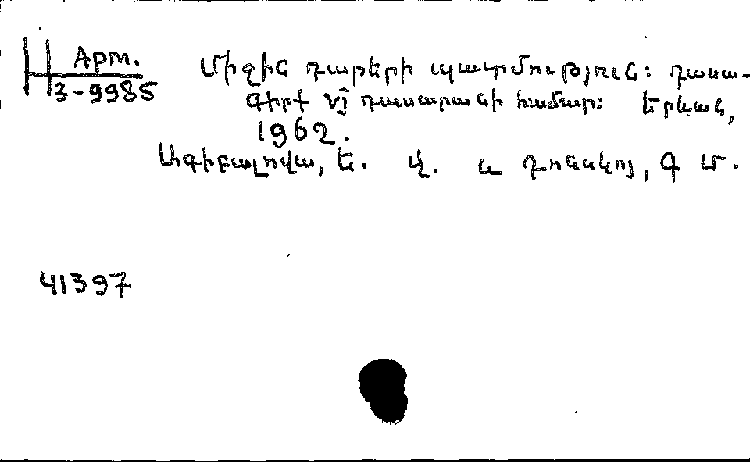 Арт.
3-9985
Միջին դարերի պատմություն: դասա-
գիրք VI դասարանի համար: Երևան,
1962.
Ագիբալովա, Ե. Վ. և Դոնսկոյ, Գ Մ.
41397